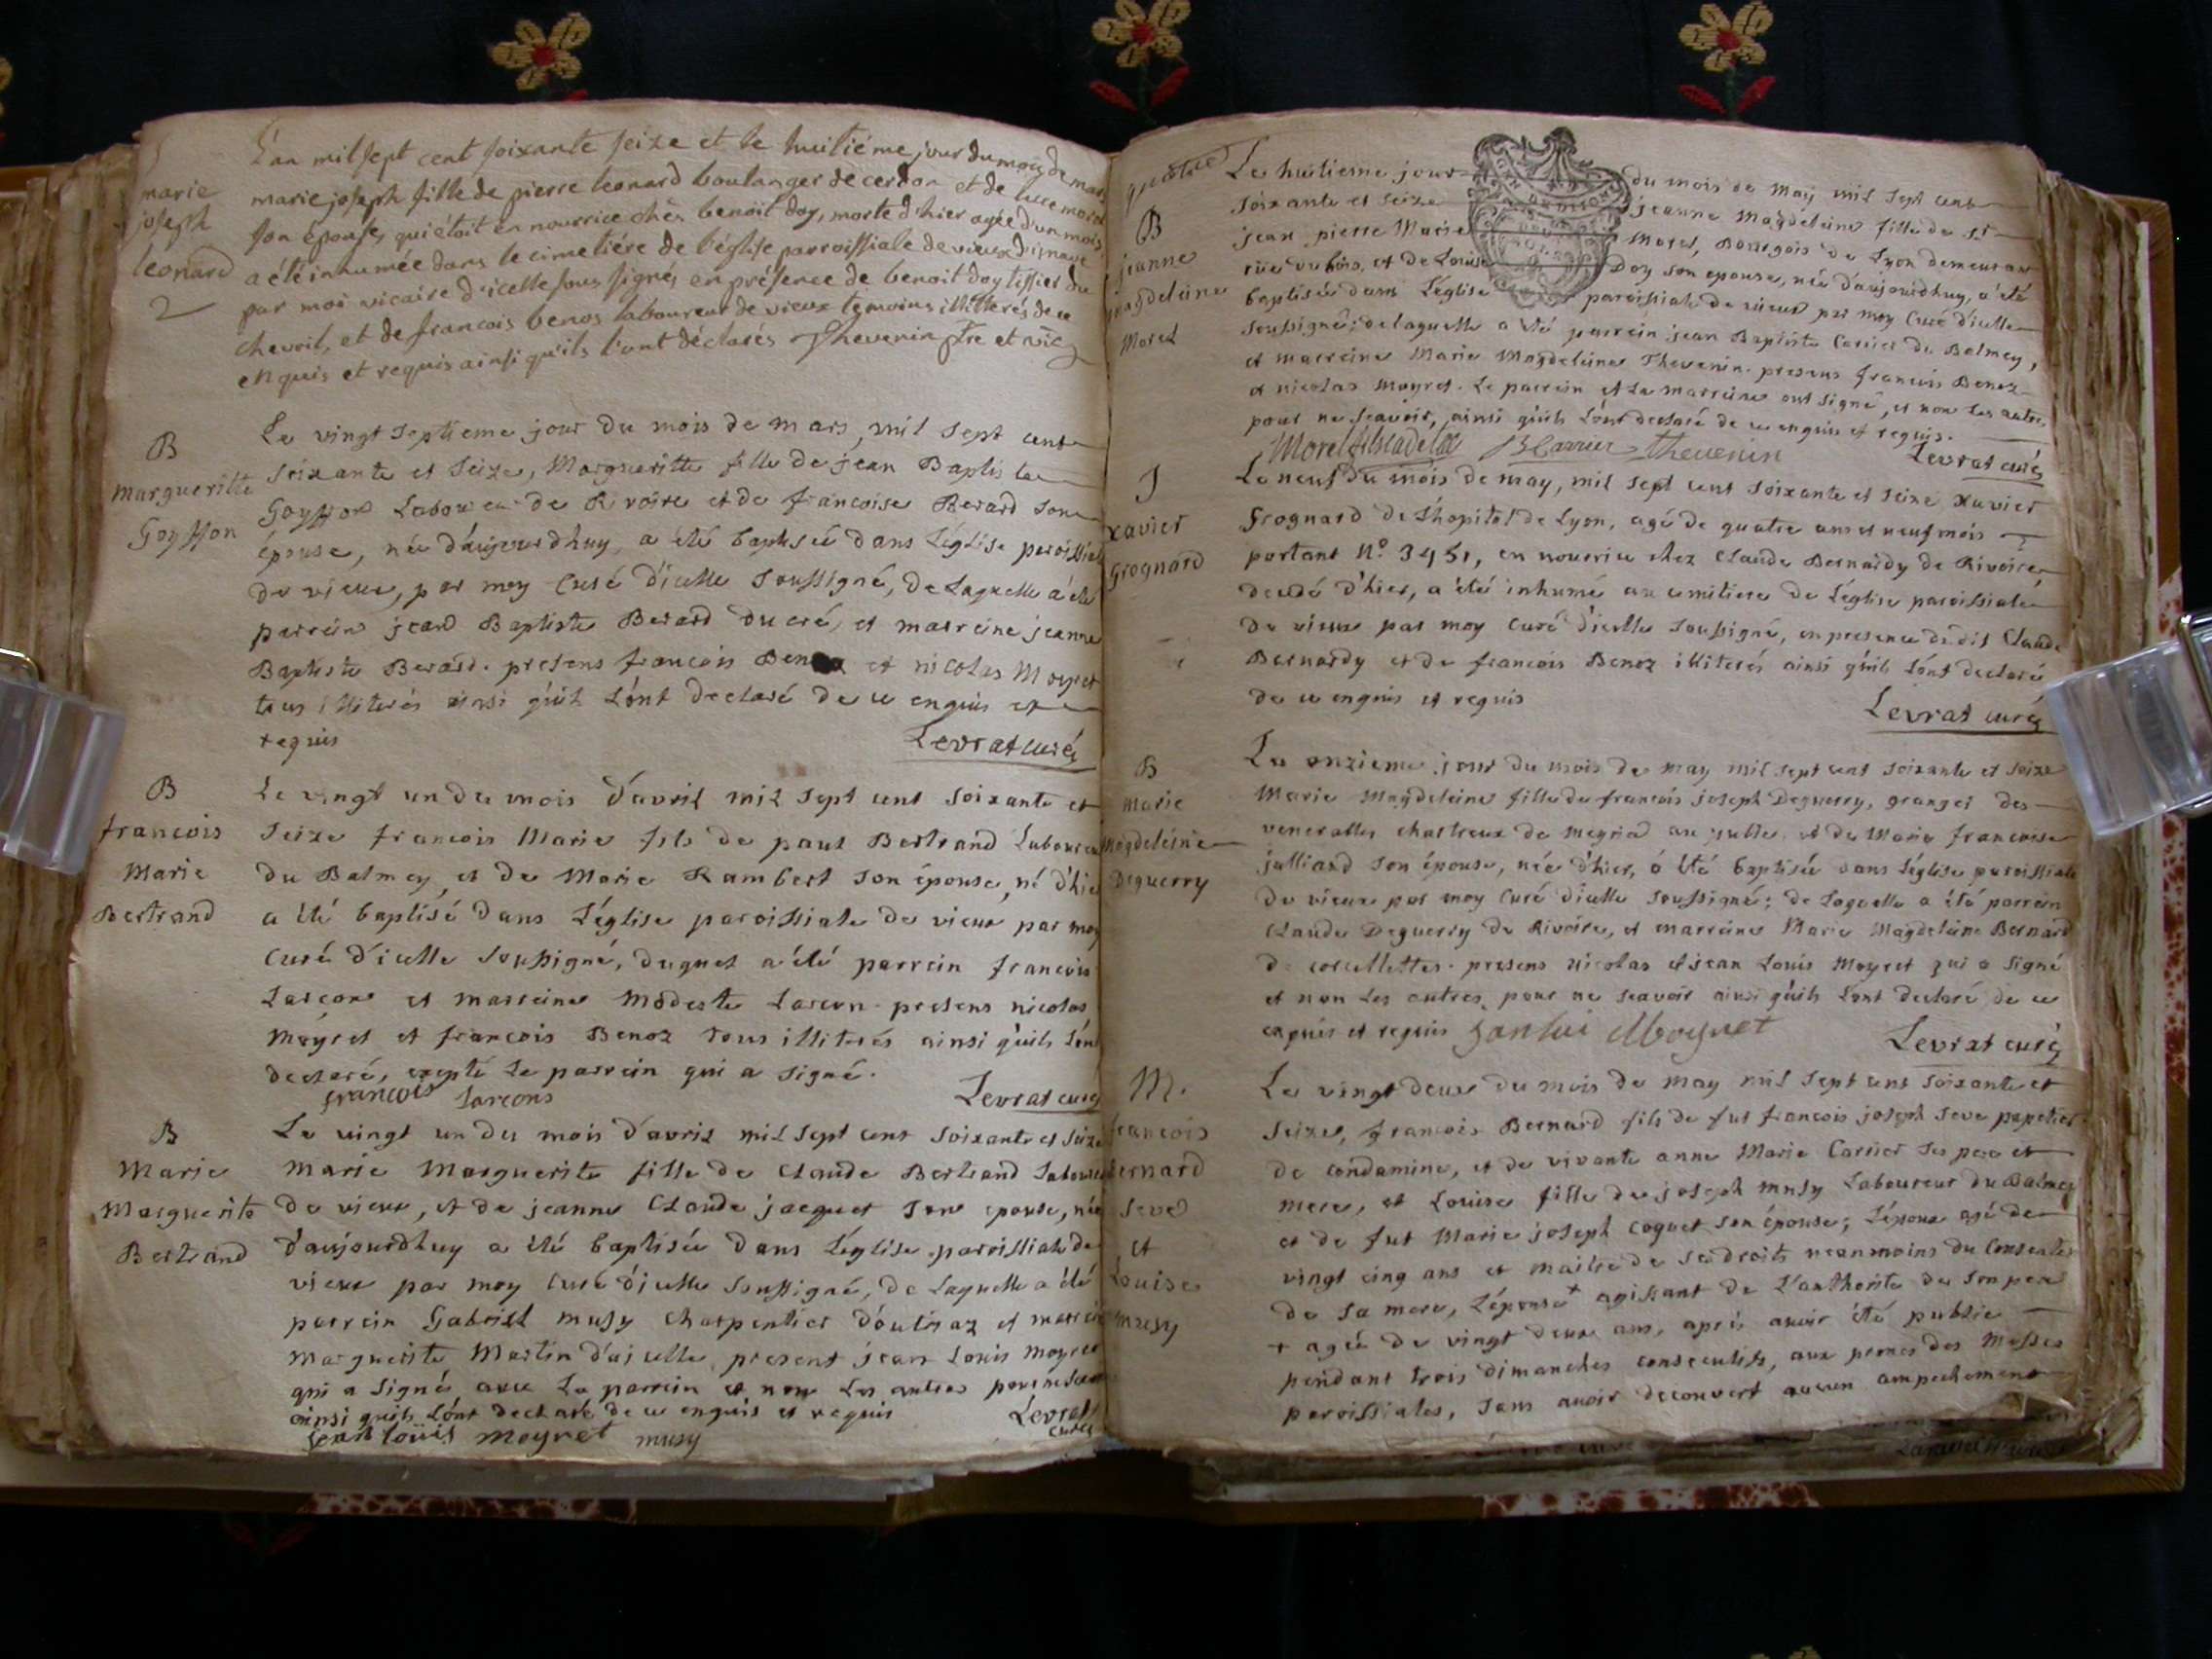 L'an mil sept cent soixante seize et le huitiéme jour du mois de mars
marie joseph fille de pierre leonard boulanger de cerdon et de luce morel
son épouse, qui étoit en nourrice chès benoit doy, morte d'hier agée d'un mois
a été inhumée dans le cimetiére de l'église paroissiale de vieux d'isnave
par moi vicaire d'icelle sous signé, en présence de benoit doy tissier du
chevril, et de francois benos laboureur de vieux temoins illitterés de ce
enquis et requis ainsi qu'ils l'ont déclarés Thevenin ptre et vic
marie
joseph
léonard
2
B
margueritte
Goyffon
Le vingt septieme jour du mois de mars, mil sept cent
soixante et seize, Margueritte fille de jean Baptiste
Goyffon Laboureur de Rivoire et de francoise Berard son
épouse, née d'aujourdhuy, a été baptisée dans l'église paroissiale
de vieux, par moy Curé d'icelle soussigné, de Laquelle a été
parrein jean Baptiste Berard du cré, et marreine jeanne
Baptiste Berard. presens francois Benoz et nicolas Moyret
tous illiterés ainsi qu'ils L'ont declaré de ce enquis et
requis
Levrat curé
B
francois
Marie
Bertrand
Le vingt un du mois d'avril mil sept cent soixante et
seize francois Marie fils de paul Bertrand Laboureur
du Balmey, et de Marie Rambert son épouse, né d'hier
a été baptisé dans L'église paroissiale de vieux par moy
Curé d'icelle soussigné, duquel a été parrein francois
Larcon et marreine Modeste Larcon. presens nicolas
Moyret et francois Benoz tous illiterés ainsi qu'ils L'ont
declaré, excepté Le parrein qui a signé.
francois Larcons
Levrat curé
B
Marie
Marguerite
Bertrand
Le vingt un du mois d'avril mil sept cent soixante et seize
Marie Marguerite fille de Claude Bertrand Laboureur
de vieux, et de jeanne Claude jacquet son epouse, née
d'aujourdhuy a été baptisée dans L'église paroissiale de
vieux par moy Curé d'icelle soussigné, de Laquelle a été
parrein Gabriel musy charpentier d'outriaz et marreine
Marguerite Martin d'ajcelle, present jean Louis Moyret
qui a signé avec Le parrein et non Les autres
ainsi qu'ils L'ont declaré de ce enquis et requis
Levrat
curé
jean loüis moyret musy
quatre
B
jeanne
magdeleine
Morel
Le huitieme jour du mois de may mil sept cent
soixante et seize jeanne Magdeleine fille de sr
jean pierre Marie Morel, Bourgois de Lyon demeurant
rüe du bois, et de Louise Doy son epouse, née d'aujourdhuy, a été
baptisée dans L'église paroissiale de vieux par moy Curé d'icelle
soussigné; de laquelle a été parrein jean Baptiste Carrier du Balmey,
et marreine Marie Magdeleine Thevenin. presens francois Benoz
et nicolas Moyret. Le parrein et La marreine ont signé, et non Les autres
pour ne scavoir, ainsi qu'ils L'ont declaré de ce enquis et requis.
Morel BCarrier thevenin
Levrat curé
J
xavier
Grognard
Le neuf du mois de may, mil sept cent soixante et seize xavier
Grognard de L'hopital de Lyon, agé de quatre ans et neuf mois
portant N° 3451, en nourrice chez Claude Bernardy de Rivoire,
decedé d'hier, a été inhumé au cimitiere de L'église paroissiale
de vieux par moy Curé d'icelle soussigné, en presence dedit Claude
Bernardy et de francois Benoz illiterés ainsi qu'ils L'ont declaré
de ce enquis et requis
Levrat curé
B
Marie
Magdeleine
Deguerry
Le onzieme jour du mois de may mil sept cent soixante et seize
Marie Magdeleine fille de francois joseph Deguerry, granger des
venerables chartreux de Meyria et de Marie francoise
julliard son épouse, née d'hier, a été baptisée dans L'église paroissiale
de vieux par moy Curé d'icelle soussigné; de Laquelle a été parrein
Claude Deguerry de Rivoire, et marreine Marie Magdeleine Bernard
de corcellettes. presens nicolas et jean Louis Moyret qui a signé
et non Les autres, pour ne scavoir ainsi qu'ils L'ont declaré de ce
enquis et requis janlui Moyret
Levrat curé
M.
francois
bernard
Seve
et
Louise
musy
Le vingt deux du mois de may mil sept cent soixante et
seize, francois Bernard fils de fut francois joseph Seve papetier
de condamine, et de vivante anne Marie Carrier ses pere et
mere, et Louise fille de joseph musy Laboureur du Balmey
et de fut Marie joseph coquet son épouse; L'époux agé de
vingt cinq ans et maitre de ses droits neanmoins du Consentement
de sa mere, L'épouse + agissant de L'authorité de son pere
+ agée de vingt deux ans, après avoir été publié
pendant trois dimanches consecutifs, aux prones des Messes
paroissiales, sans avoir decouvert aucun ampechement